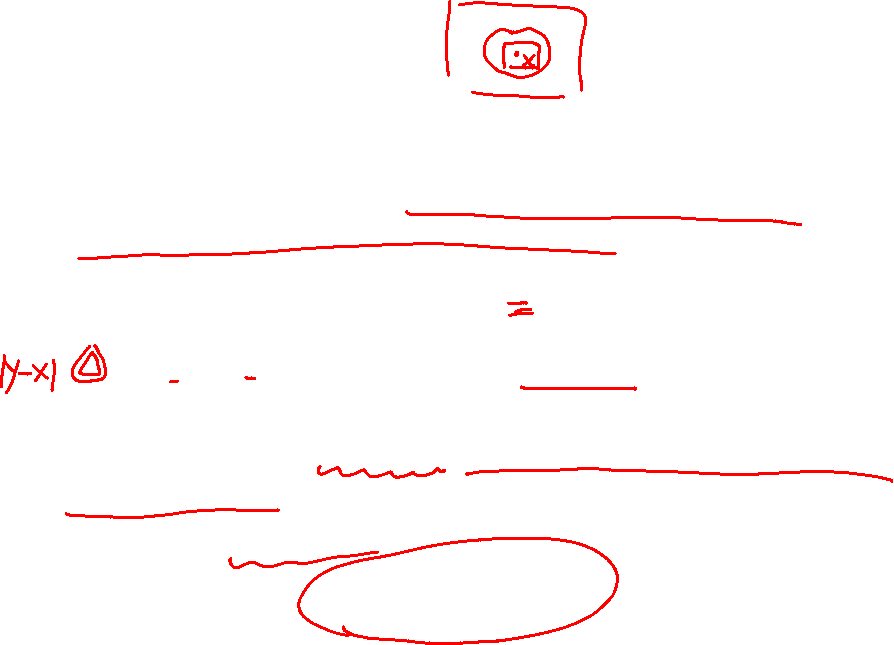 ·x
=
|y-x| △
- -